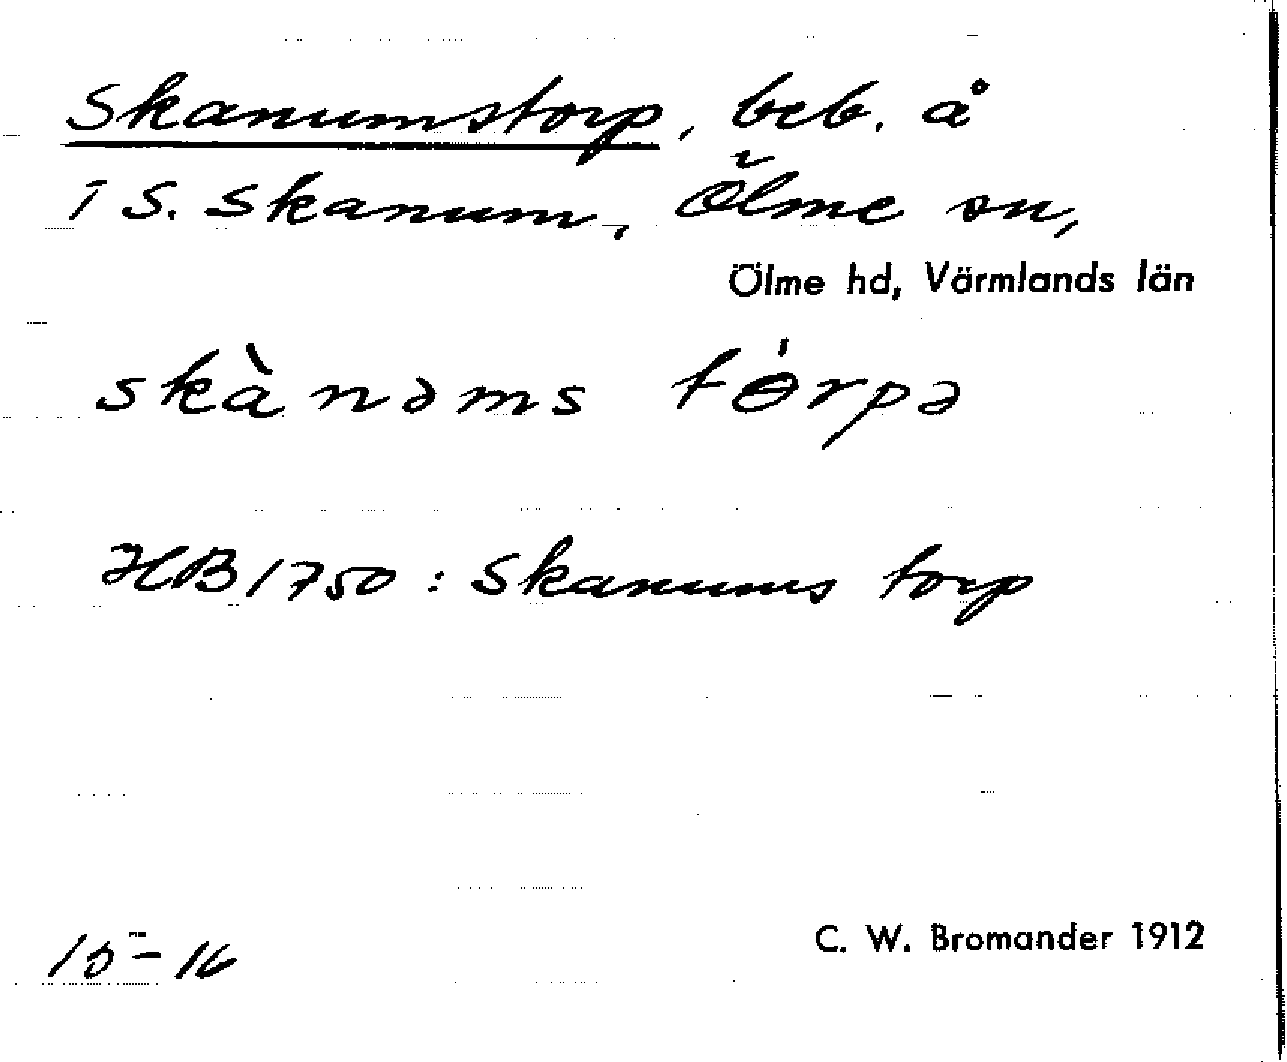 Skanumstorp, beb. å
1 S. Skanum, Ölme sn,
Ölme hd, Värmlands län
skànəms tɵ́rpə
HB 1750: Skanums torp
C. W. Bromander 1912